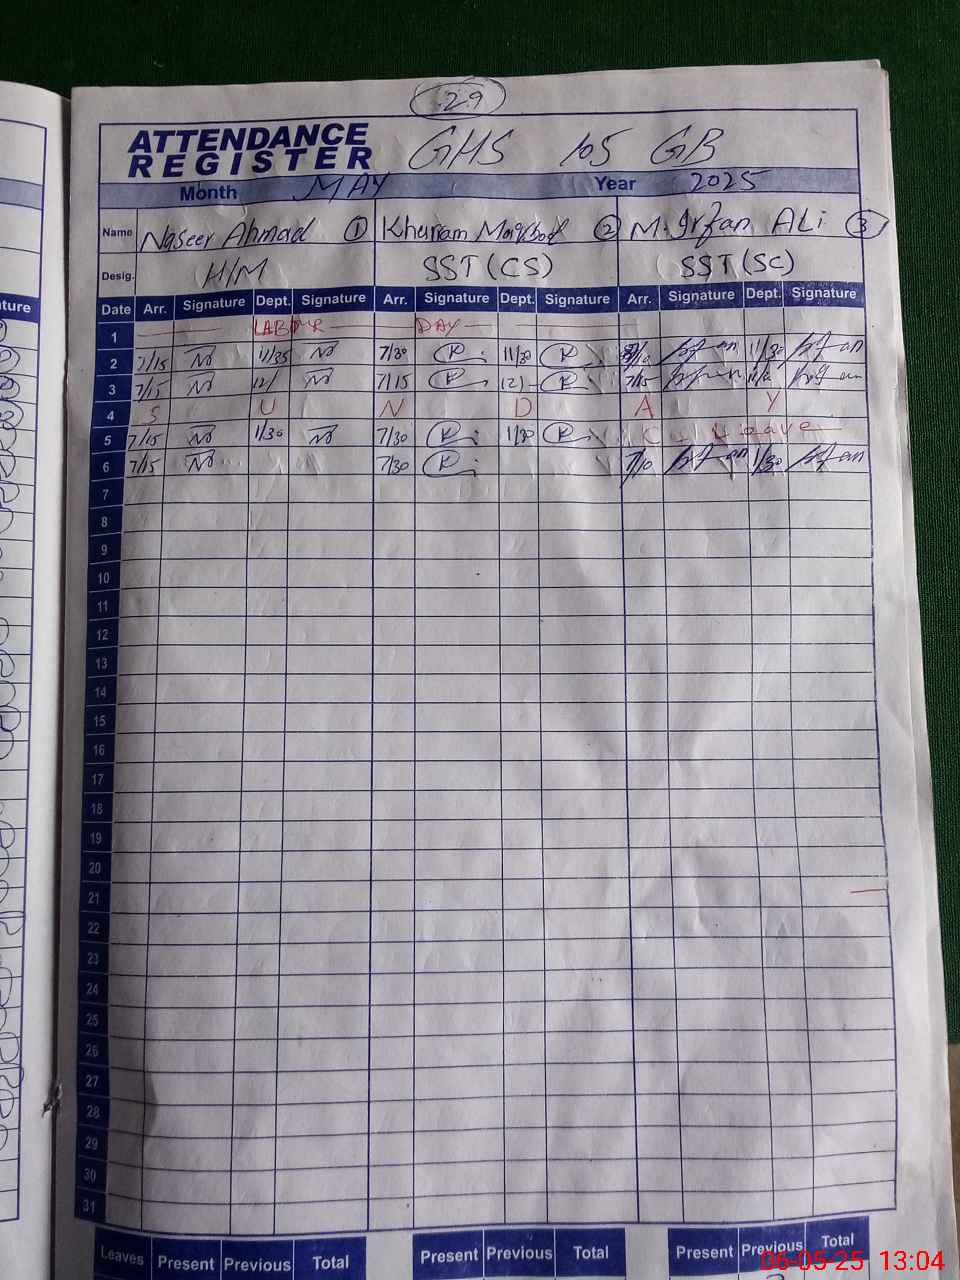 29
ATTENDANCE
REGISTER GHS 105 GB
Month MAY Year 2025
Name Naseer Ahmad 1 Khurram Maqbool 2 M. Irfan ALi 3
Desig. H/M SST (CS) SST (SC)
Date Arr. Signature Dept. Signature Arr. Signature Dept. Signature Arr. Signature Dept. Signature
1 LABOUR DAY
2 7/15 11/35 7/30 11/30 7/10 11/30
3 7/15 12/ 7/15 12/- 7/15
4 S U N D A Y
5 7/15 1/30 7/30 1/30 C. Leave
6 7/15 7/30 7/10 1/30
7
8
9
10
11
12
13
14
15
16
17
18
19
20
21
22
23
24
25
26
27
28
29
30
31
Leaves Present Previous Total Present Previous Total Present Previous Total
06-05-25 13:04